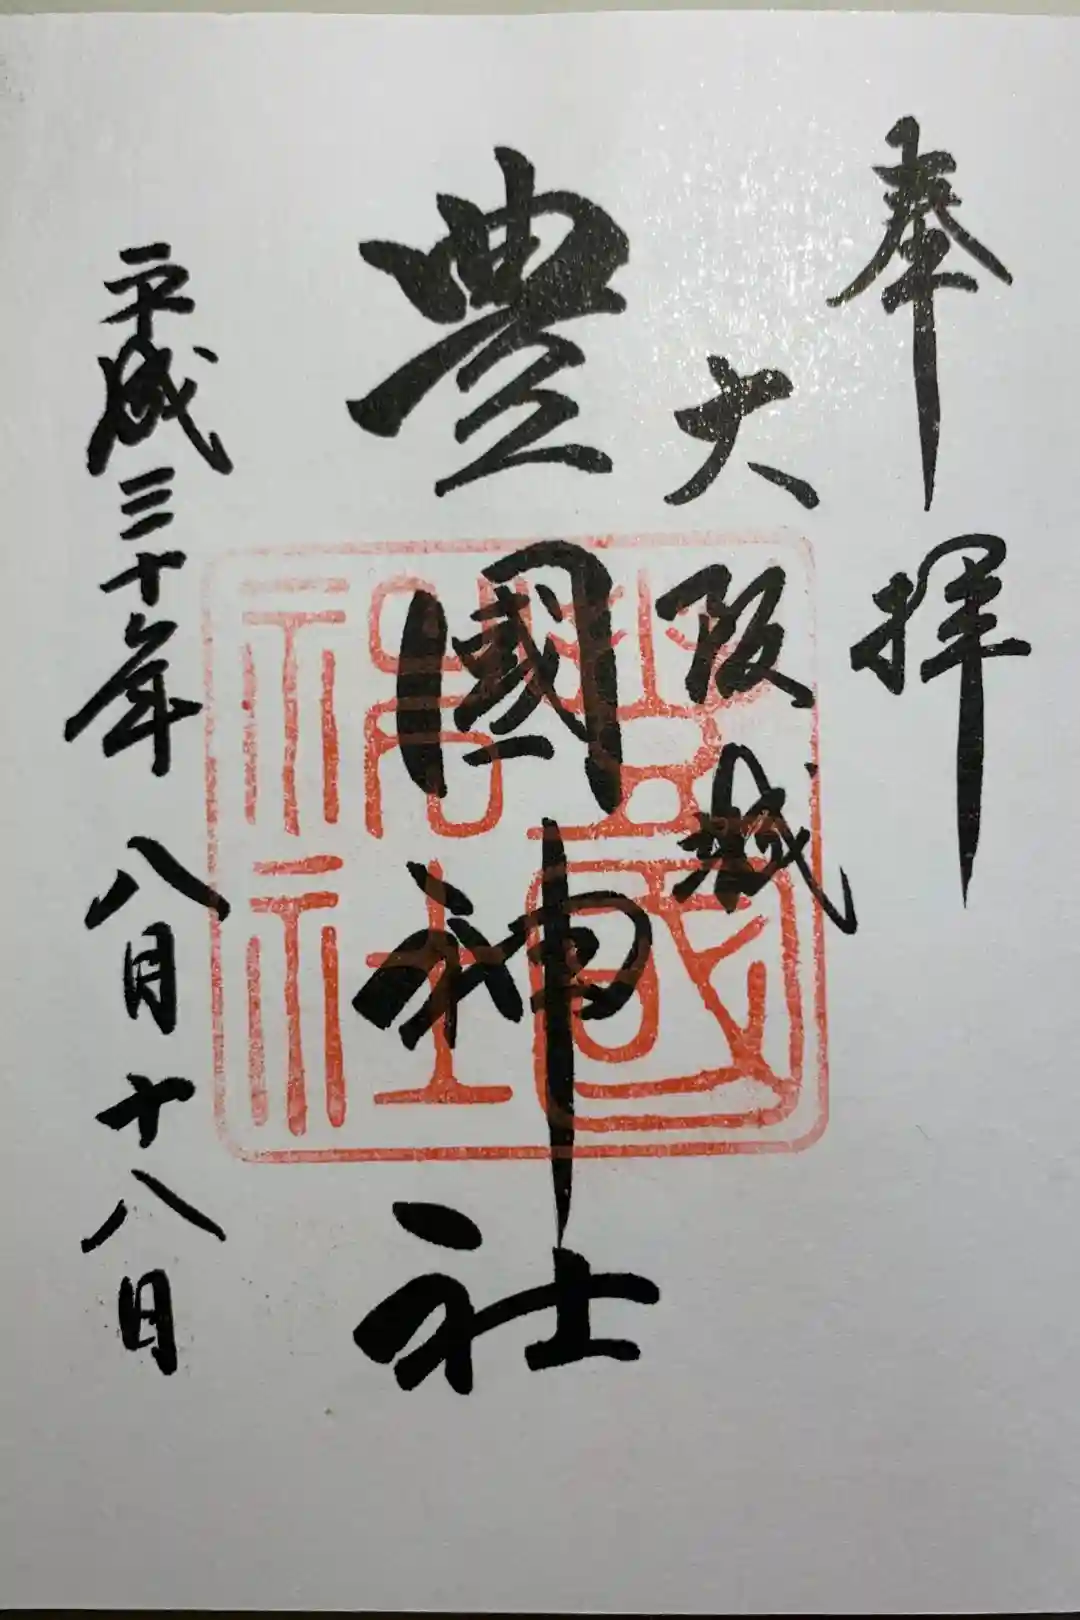 奉拝
大阪城
豊國神社
平成三十年八月十八日
豊國神社